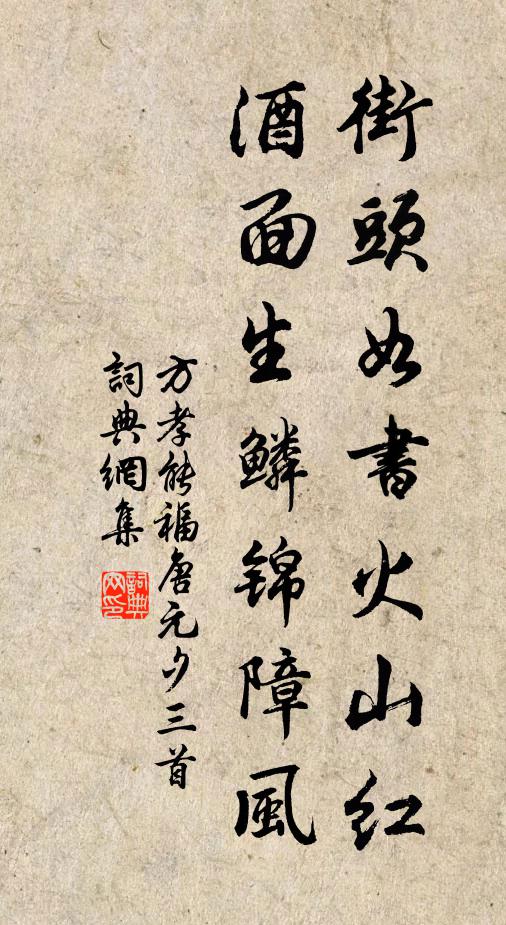 街頭如書火山红
酒面生鱗锦障風
方孝能福唐元夕三首
詞典網集
詞典网印